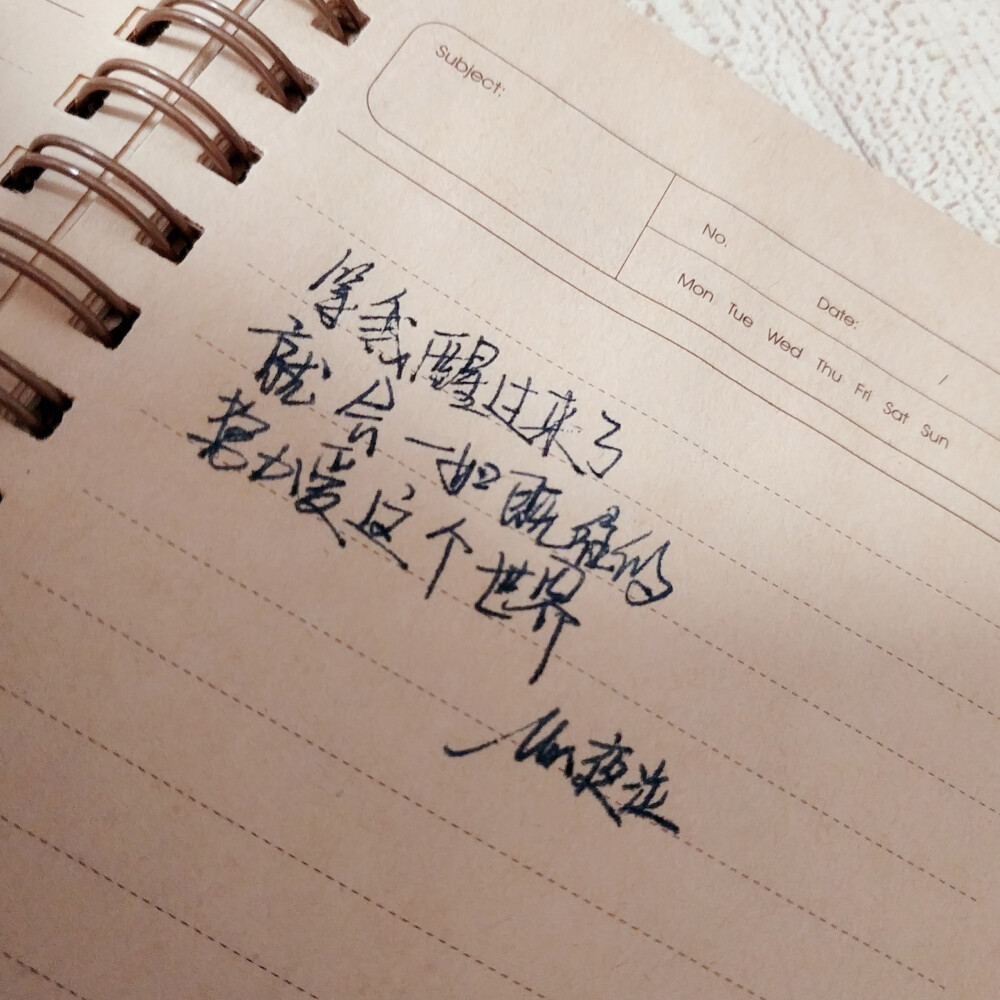 Subject:
No.
Date:
Mon Tue Wed Thu Fri Sat Sun
等我醒过来了
就会一如既往的
热爱这个世界